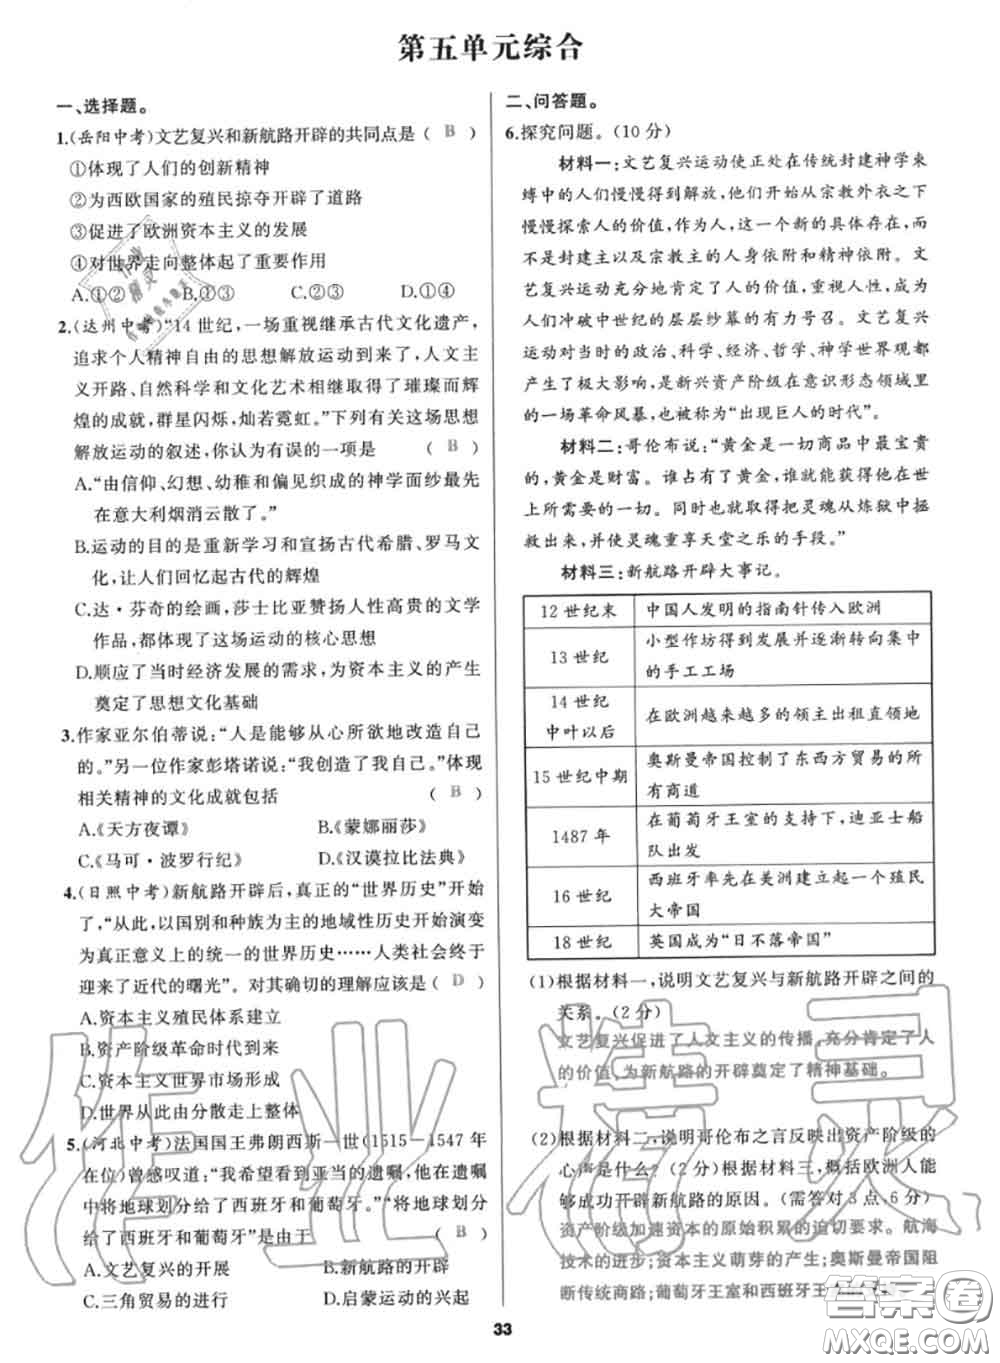 第五单元综合
一、选择题。
1.(岳阳中考)文艺复兴和新航路开辟的共同点是 ( B )
①体现了人们的创新精神
②为西欧国家的殖民掠夺开辟了道路
③促进了欧洲资本主义的发展
④对世界走向整体起了重要作用
A.①② B.①③ C.②③ D.①④
2.(达州中考)“14 世纪,一场重视继承古代文化遗产,
追求个人精神自由的思想解放运动到来了,人文主
义开路、自然科学和文化艺术相继取得了璀璨而辉
煌的成就,群星闪烁,灿若霓虹。”下列有关这场思想
解放运动的叙述,你认为有误的一项是 ( B )
A.“由信仰、幻想、幼稚和偏见织成的神学面纱最先
在意大利烟消云散了。”
B.运动的目的是重新学习和宣扬古代希腊、罗马文
化,让人们回忆起古代的辉煌
C.达·芬奇的绘画,莎士比亚赞扬人性高贵的文学
作品,都体现了这场运动的核心思想
D.顺应了当时经济发展的需求,为资本主义的产生
奠定了思想文化基础
3.作家亚尔伯蒂说:“人是能够从心所欲地改造自己
的。”另一位作家彭塔诺说:“我创造了我自己。”体现
相关精神的文化成就包括 ( B )
A.《天方夜谭》 B.《蒙娜丽莎》
C.《马可·波罗行纪》 D.《汉谟拉比法典》
4.(日照中考)新航路开辟后,真正的“世界历史”开始
了,“从此,以国别和种族为主的地域性历史开始演变
为真正意义上的统一的世界历史……人类社会终于
迎来了近代的曙光”。对其确切的理解应该是 ( D )
A.资本主义殖民体系建立
B.资产阶级革命时代到来
C.资本主义世界市场形成
D.世界从此由分散走上整体
5.(河北中考)法国国王弗朗西斯一世(1515－1547 年
在位)曾感叹道:“我希望看到亚当的遗嘱,他在遗嘱
中将地球划分给了西班牙和葡萄牙。”“将地球划分
给了西班牙和葡萄牙”是由于 ( B )
A.文艺复兴的开展 B.新航路的开辟
C.三角贸易的进行 D.启蒙运动的兴起
二、问答题。
6.探究问题。(10 分)
材料一:文艺复兴运动使正处在传统封建神学束
缚中的人们慢慢得到解放,他们开始从宗教外衣之下慢
慢探索人的价值,作为人,这一个新的具体存在,而
不是封建主以及宗教主的人身依附和精神依附。文
艺复兴运动充分地肯定了人的价值,重视人性,成为
人们冲破中世纪的层层纱幕的有力号召。文艺复兴
运动对当时的政治、科学、经济、哲学、神学世界观都
产生了极大影响,是新兴资产阶级在意识形态领域里
的一场革命风暴,也被称为“出现巨人的时代”。
材料二:哥伦布说:“黄金是一切商品中最宝贵
的,黄金是财富。谁占有了黄金,谁就能获得他在世
上所需要的一切。同时也就取得把灵魂从炼狱中拯
救出来,并使灵魂重享天堂之乐的手段。”
材料三:新航路开辟大事记。
12 世纪末 中国人发明的指南针传入欧洲
13 世纪 小型作坊得到发展并逐渐转向集中
的手工工场
14 世纪
中叶以后 在欧洲越来越多的领主出租直领地
15 世纪中期 奥斯曼帝国控制了东西方贸易的所
有商道
1487 年 在葡萄牙王室的支持下,迪亚士船
队出发
16 世纪 西班牙率先在美洲建立起一个殖民
大帝国
18 世纪 英国成为“日不落帝国”
(1)根据材料一,说明文艺复兴与新航路开辟之间的
关系。(2 分)
文艺复兴促进了人文主义的传播,充分肯定了人
的价值,为新航路的开辟奠定了精神基础。
(2)根据材料二,说明哥伦布之言反映出资产阶级的
心声是什么?(2 分)根据材料三,概括欧洲人能
够成功开辟新航路的原因。(需答对 3 点,6 分)
资产阶级加速资本的原始积累的迫切要求。航海
技术的进步;资本主义萌芽的产生;奥斯曼帝国阻
断传统商路;葡萄牙王室和西班牙王
33
作业精灵
答案圈
MXQE.COM